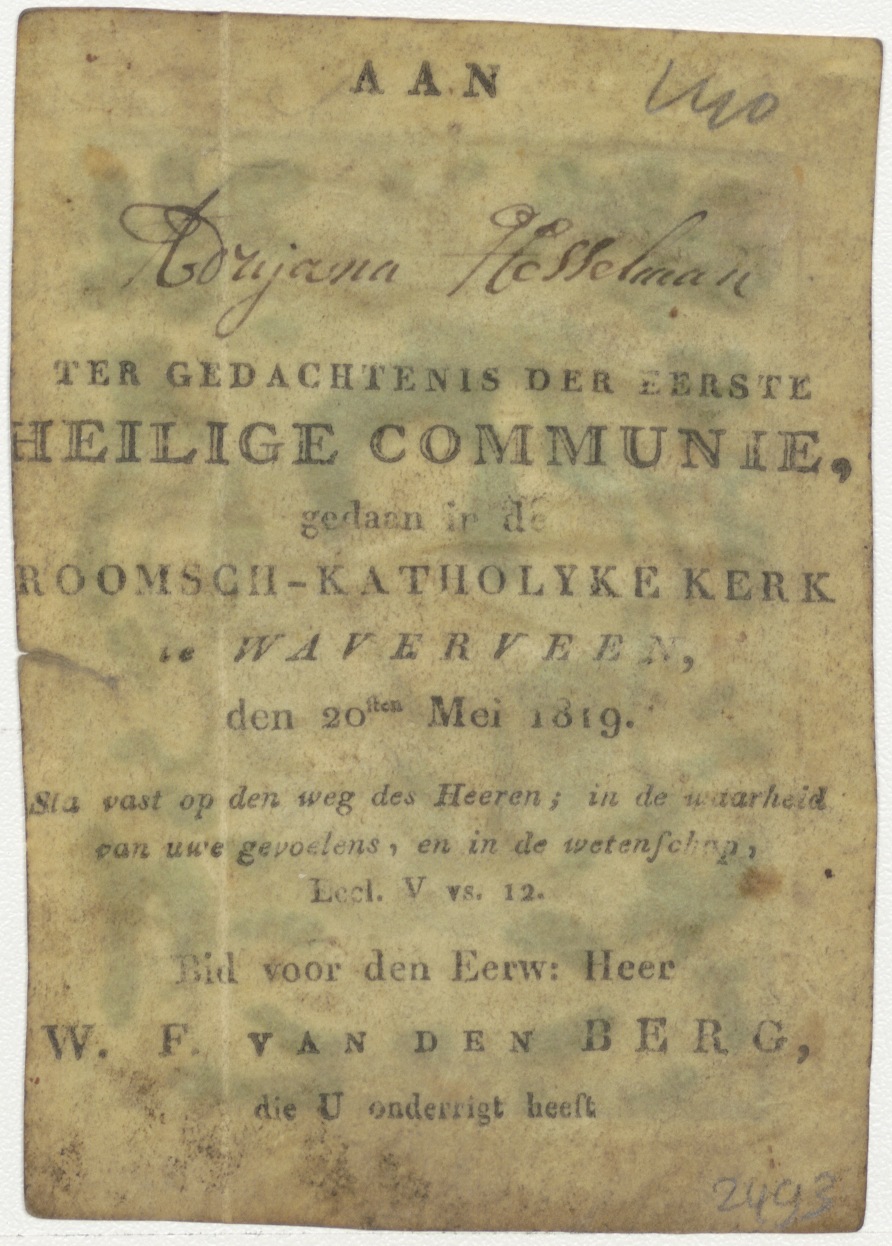 AAN
Adrijana Hesselman
TER GEDACHTENIS DER EERSTE
HEILIGE COMMUNIE,
gedaan in de
ROOMSCH-KATHOLYKE KERK
te WAVERVEEN,
den 20sten Mei 1819.
Sta vast op den weg des Heeren; in de waarheid
van uwe gevoelens, en in de wetenſchap,
Eccl. V vs. 12.
Bid voor den Eerw: Heer
W. F. VAN DEN BERG,
die U onderrigt heeft
2493